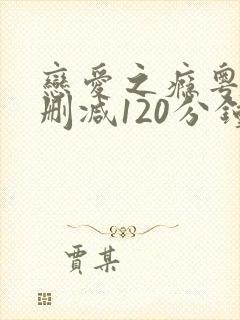 戀愛之癮粵
刪減120分鐘
賈某